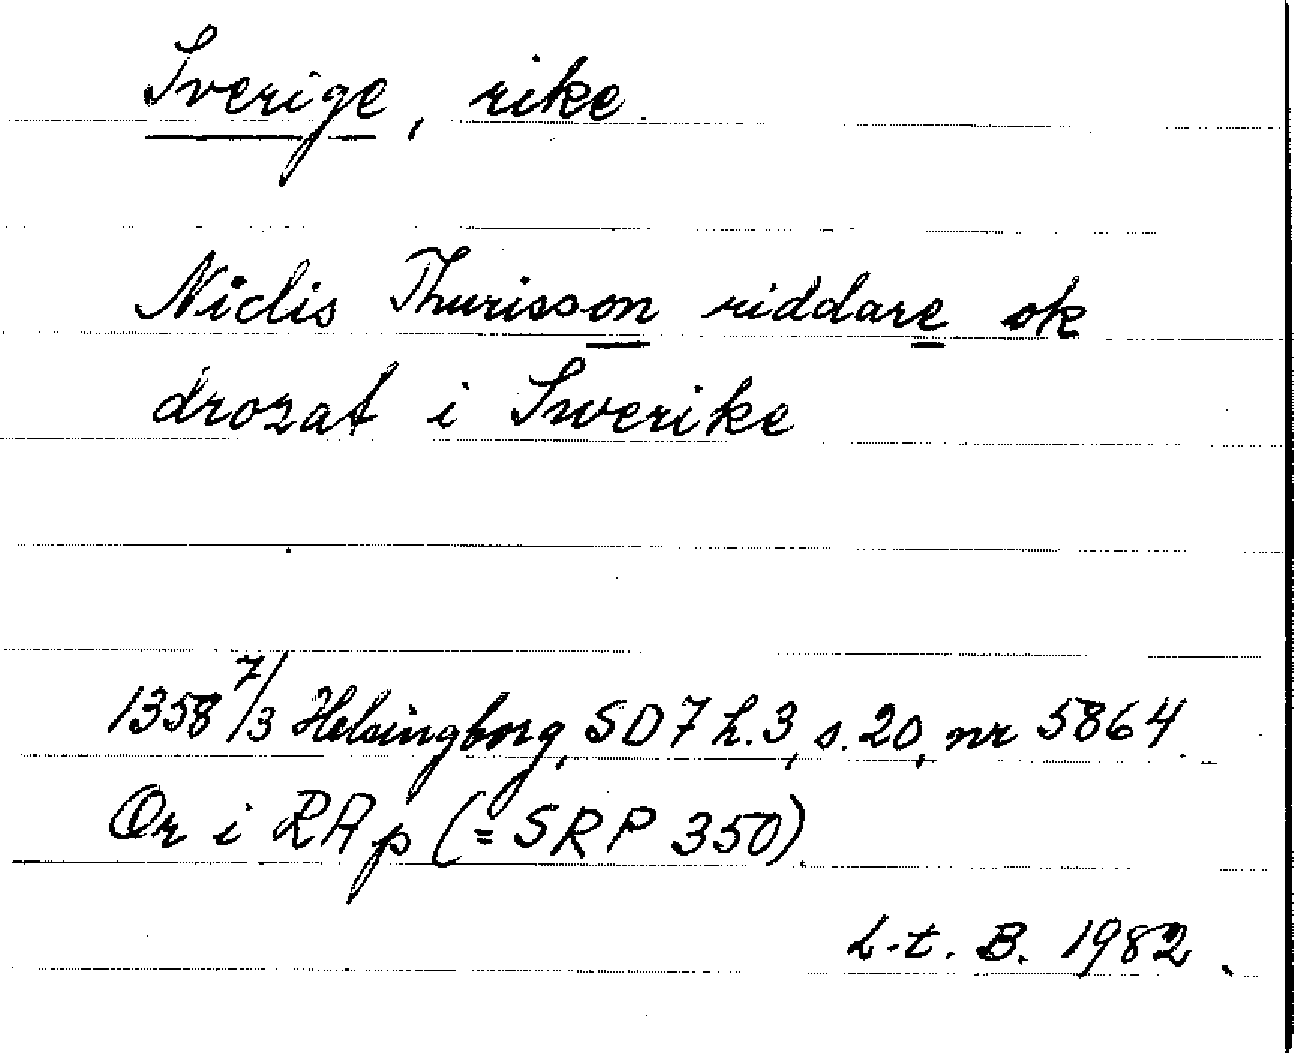 Sverige, rike.
Niclis Thurisson riddare ok
drozat i Swerike
1358 7/3 Helsingborg, SD 7 h. 3, s. 20, nr 5864.
Or i RAp (= SRP 350).
L-t. B. 1982.